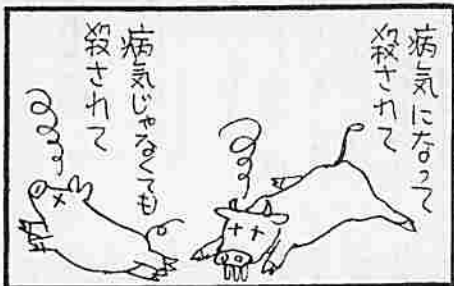 病気になって
殺されて
病気じゃなくても
殺されて